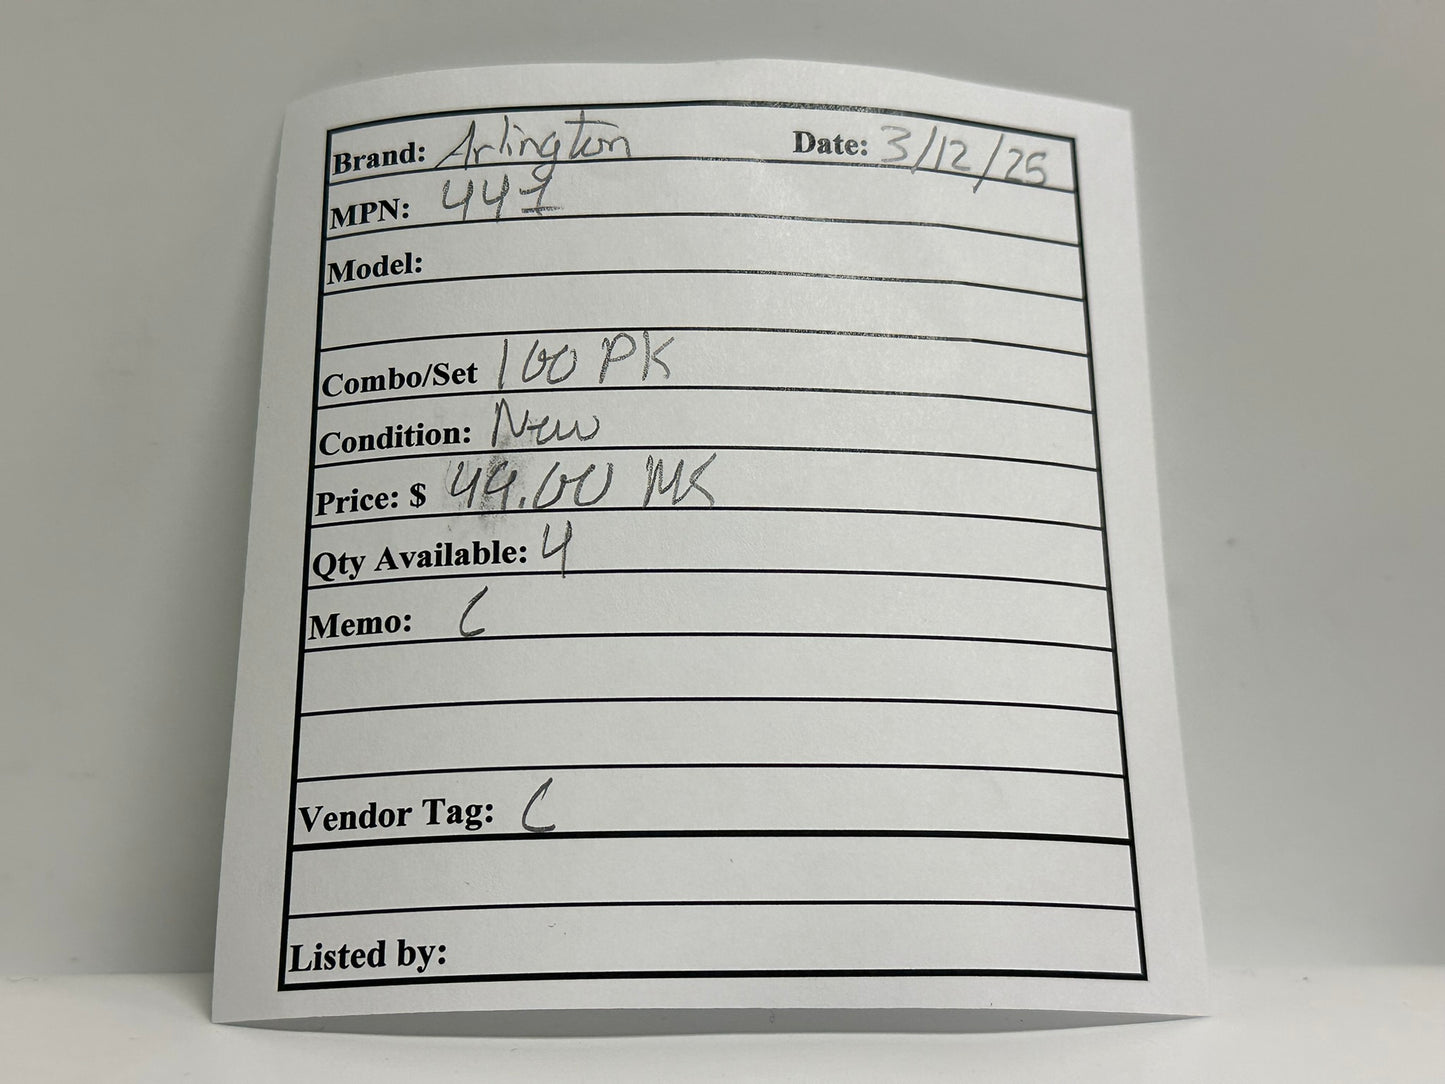 Brand: Arlington Date: 3/12/25
MPN: 441
Model:
Combo/Set 100 PK
Condition: New
Price: $ 49.00 MS
Qty Available: 4
Memo: C
Vendor Tag: C
Listed by: